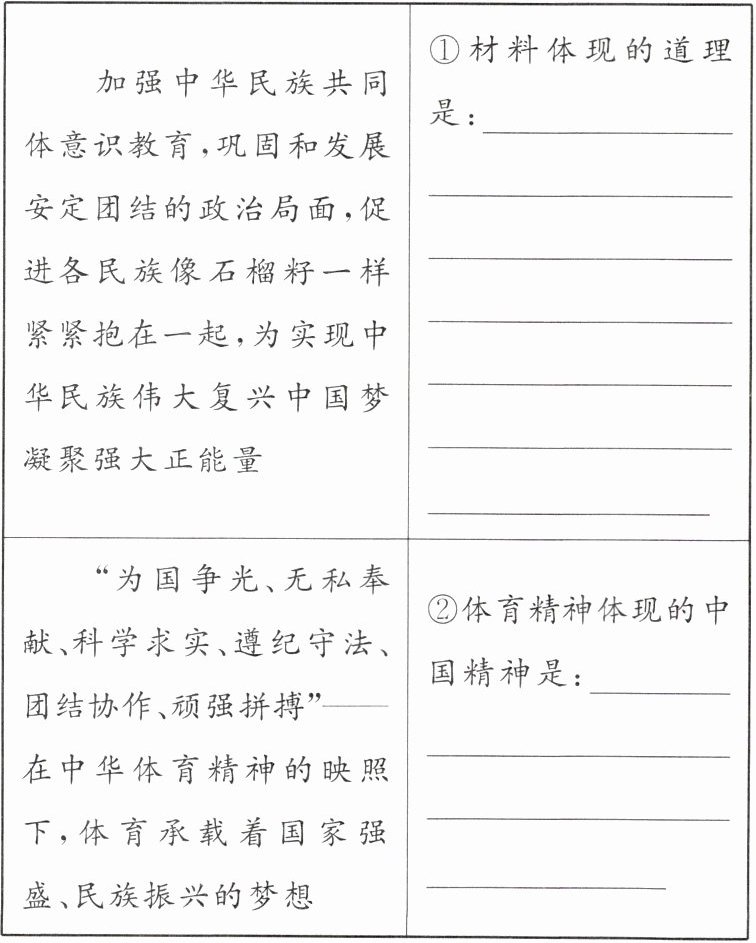 加强中华民族共同
体意识教育,巩固和发展
安定团结的政治局面,促
进各民族像石榴籽一样
紧紧抱在一起,为实现中
华民族伟大复兴中国梦
凝聚强大正能量
①材料体现的道理
是:
“为国争光、无私奉
献、科学求实、遵纪守法、
团结协作、顽强拼搏”——
在中华体育精神的映照
下,体育承载着国家强
盛、民族振兴的梦想
②体育精神体现的中
国精神是: